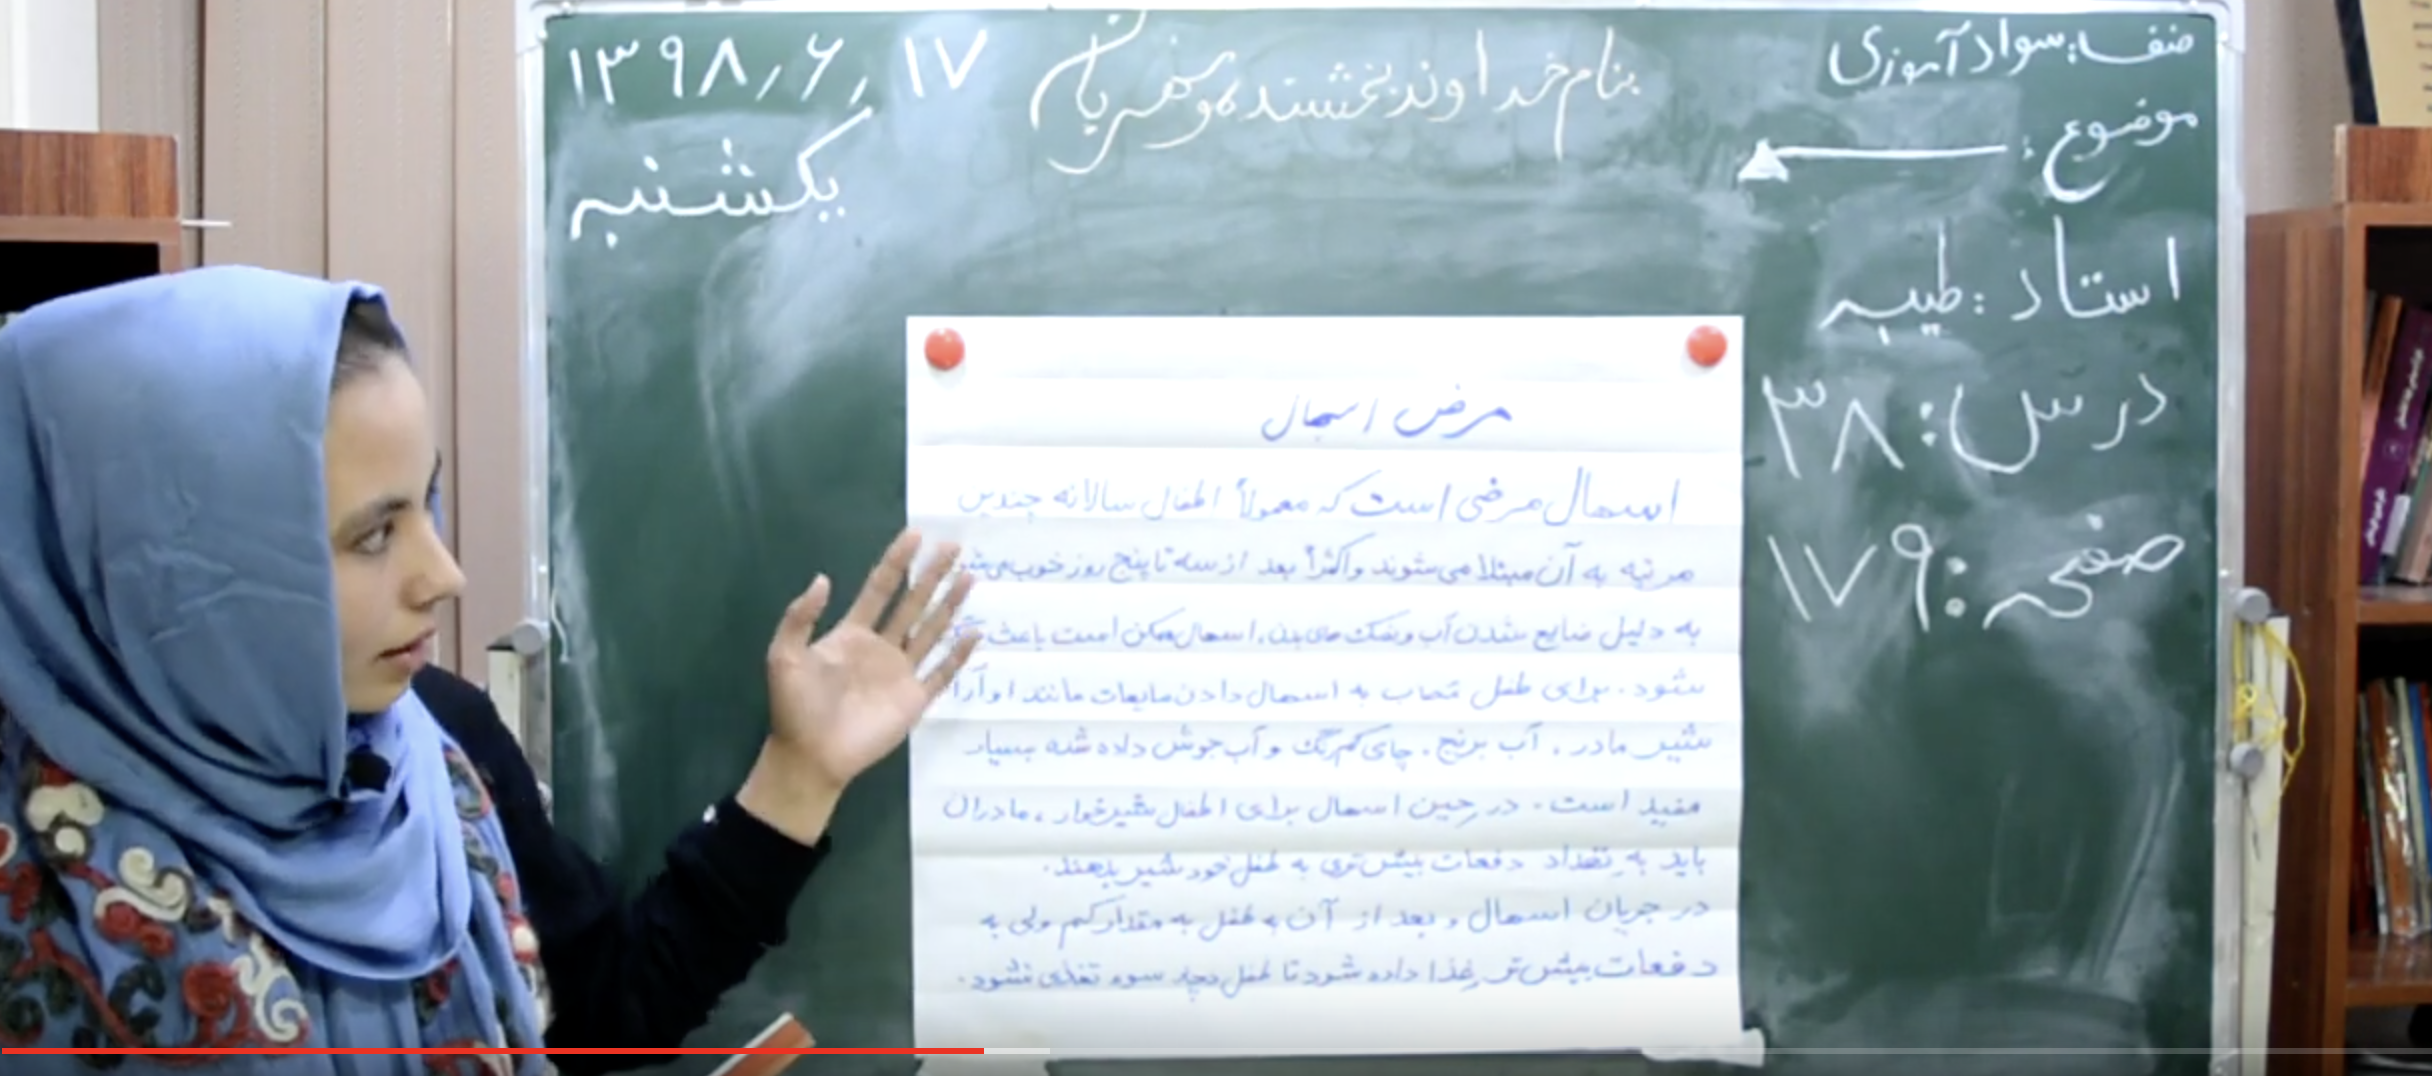 بنام خداوند بخشنده و مهربان
صنف: سواد آموزی
موضوع:
استاد: طیبه
درس: ۳۸
صفحه: ۱۷۹
۱۳۹۸/۶/۱۷
یکشنبه
مرض اسهال
اسهال مرضی است که معمولاً اطفال سالانه چندین
مرتبه به آن مبتلا می‌شوند و اکثراً بعد از سه تا پنج روز خوب می‌شو
به دلیل ضایع شدن آب و نمک های بدن، اسهال ممکن است باعث
شود. برای طفل مصاب به اسهال دادن مایعات مانند او آر
شیر مادر، آب برنج، چای کم رنگ و آب جوش داده شده بسیار
مفید است. در حین اسهال برای اطفل شیرخوار، مادران
باید به تعداد دفعات بیش‌تری به طفل خود شیر بدهند.
در جریان اسهال و بعد از آن به طفل به مقدار کم ولی به
دفعات بیش‌تر غذا داده شود تا طفل دچار سوء تغذی نشود.